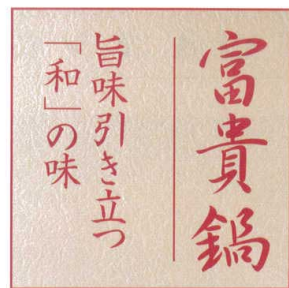 富貴鍋
旨味引き立つ
「和」の味